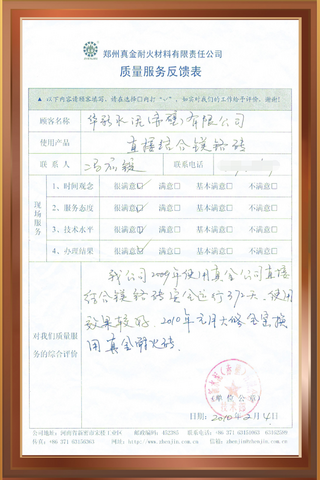 郑州真金耐火材料有限责任公司
质量服务反馈表
▲ 以下内容请顾客填写，请在选择□内打“✓”，如实对我们的工作给予评价，谢谢！
顾客名称 华新水泥（赤壁）有限公司
使用产品 直接结合镁铬砖
联系人 冯 联系电话
现场服务
1、时间观念 很满意☑ 满意□ 基本满意□ 不满意□
2、服务态度 很满意☑ 满意□ 基本满意□ 不满意□
3、技术水平 很满意☑ 满意□ 基本满意□ 不满意□
4、办度结果 很满意☑ 满意□ 基本满意□ 不满意□
对我们质量服务的综合评价
我公司2009年使用真金公司直接
结合镁铬砖安全运行372天，使用
效果较好。2010年元月大修全窑换
用真金耐火砖。
（单位公章）
日期：2010 2/4日
公司地址：河南省新密市实验工业区 邮政编码：452385
网址：http://www.zhenjin.com.cn